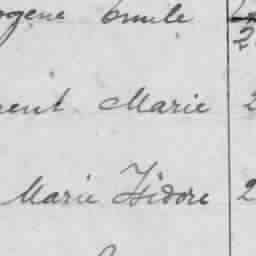 ogene Emile
2
ent Marie 2
Marie Isidore 2